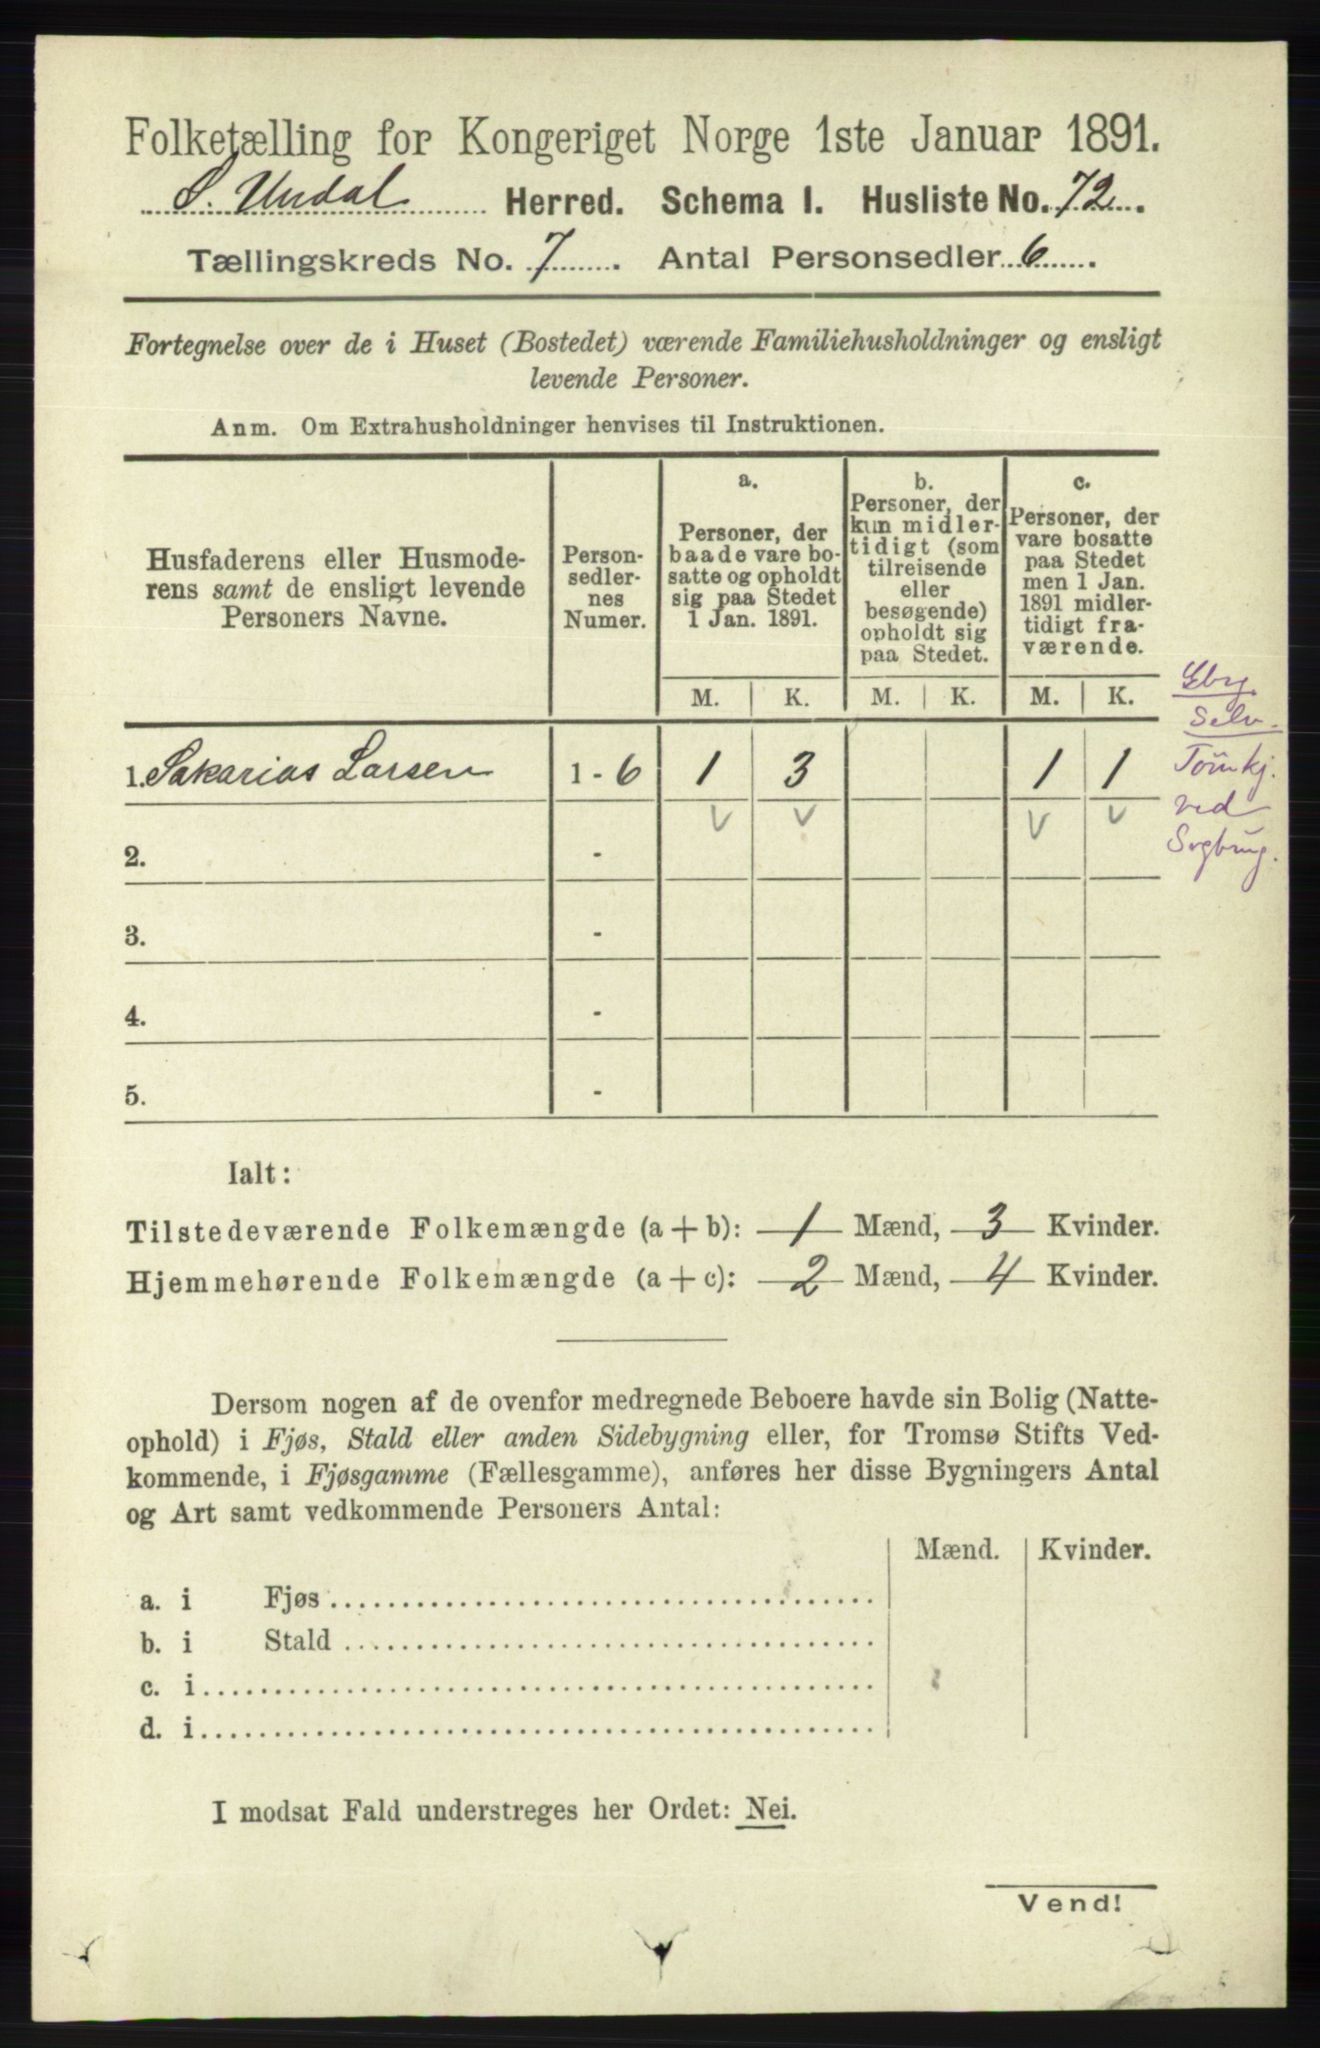 Folketælling for Kongeriget Norge 1ste Januar 1891.
S. Undal Herred. Schema I. Husliste No. 72.
Tællingskreds No. 7. Antal Personsedler 6.
Fortegnelse over de i Huset (Bostedet) værende Familiehusholdninger og ensligt
levende Personer.
Anm. Om Extrahusholdninger henvises til Instruktionen.
Husfaderens eller Husmode-
rens samt de ensligt levende
Personers Navne.
Person-
sedler-
nes
Numer.
a.
Personer, der
baade vare bo-
satte og opholdt
sig paa Stedet
1 Jan. 1891.
b.
Personer, der
kun midler-
tidigt (som
tilreisende
eller
besøgende)
opholdt sig
paa Stedet.
c.
Personer, der
vare bosatte
paa Stedet
men 1 Jan.
1891 midler-
tidigt fra-
værende.
M. K. M. K. M. K.
Gbr.
Selv.
1. Sakarias Larsen 1 - 6 1 3 1 1
V V V V
ved
2. -
3. -
4. -
5. -
Ialt:
Tilstedeværende Folkemængde (a + b): 1 Mænd, 3 Kvinder.
Hjemmehørende Folkemængde (a + c): 2 Mænd, 4 Kvinder.
Dersom nogen af de ovenfor medregnede Beboere havde sin Bolig (Natte-
ophold) i Fjøs, Stald eller anden Sidebygning eller, for Tromsø Stifts Ved-
kommende, i Fjøsgamme (Fællesgamme), anføres her disse Bygningers Antal
og Art samt vedkommende Personers Antal:
Mænd. Kvinder.
a. i Fjøs
b. i Stald
c. i
d. i
I modsat Fald understreges her Ordet: Nei.
Vend!